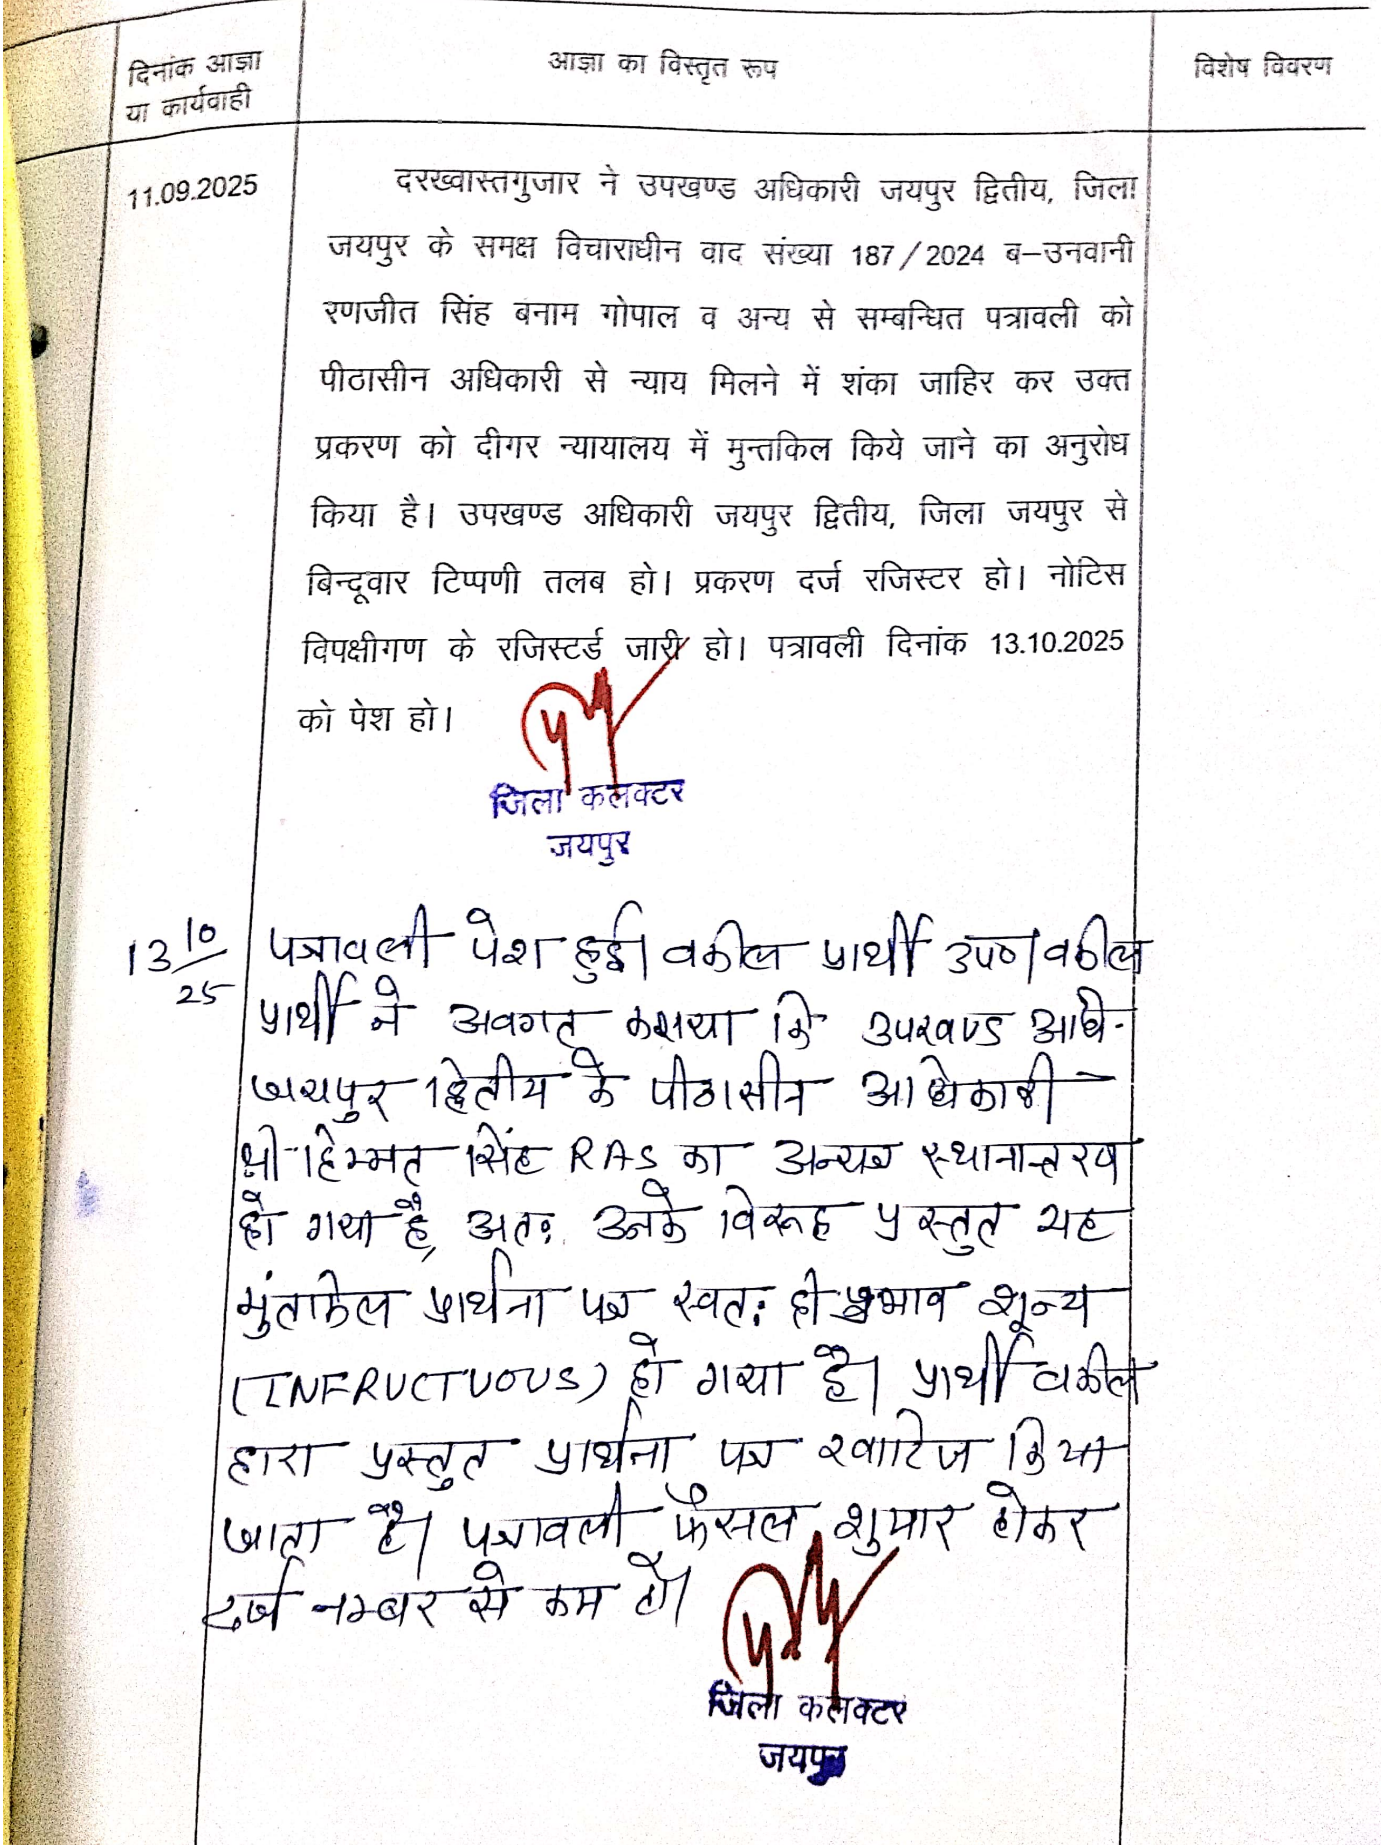 दिनांक आज्ञा
या कार्यवाही
आज्ञा का विस्तृत रूप
विशेष विवरण
11.09.2025
दरख्वास्तगुजार ने उपखण्ड अधिकारी जयपुर द्वितीय, जिला
जयपुर के समक्ष विचाराधीन वाद संख्या 187/2024 ब-उनवानी
रणजीत सिंह बनाम गोपाल व अन्य से सम्बन्धित पत्रावली को
पीठासीन अधिकारी से न्याय मिलने में शंका जाहिर कर उक्त
प्रकरण को दीगर न्यायालय में मुन्तकिल किये जाने का अनुरोध
किया है। उपखण्ड अधिकारी जयपुर द्वितीय, जिला जयपुर से
बिन्दूवार टिप्पणी तलब हो। प्रकरण दर्ज रजिस्टर हो। नोटिस
विपक्षीगण के रजिस्टर्ड जारी हो। पत्रावली दिनांक 13.10.2025
को पेश हो।
जिला कलक्टर
जयपुर
13 10/25
पत्रावली पेश हुई। वकील प्रार्थी उप०। वकील
प्रार्थी ने अवगत कराया कि उपखण्ड अधि.
जयपुर द्वितीय के पीठासीन अधिकारी
श्री हिम्मत सिंह RAS का अन्यत्र स्थानान्तरण
हो गया है, अतः उनके विरूद्ध प्रस्तुत यह
मुंतकिल प्रार्थना पत्र स्वतः ही प्रभाव शून्य
(INFRUCTUOUS) हो गया है। प्रार्थी वकील
द्वारा प्रस्तुत प्रार्थना पत्र खारिज किया
जाता है। पत्रावली फैसल शुमार होकर
दर्ज नम्बर से कम हो।
जिला कलक्टर
जयपुर